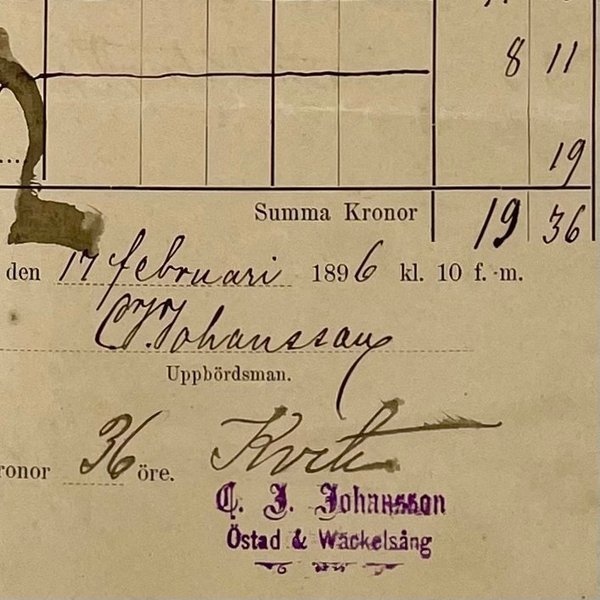 8 11
19
Summa Kronor 19 36
den 17 februari 1896 kl. 10 f. m.
C. J. Johansson
Uppbördsman.
ronor 36 öre. Kvitt
C. J. Johansson
Östad & Wäckelsång